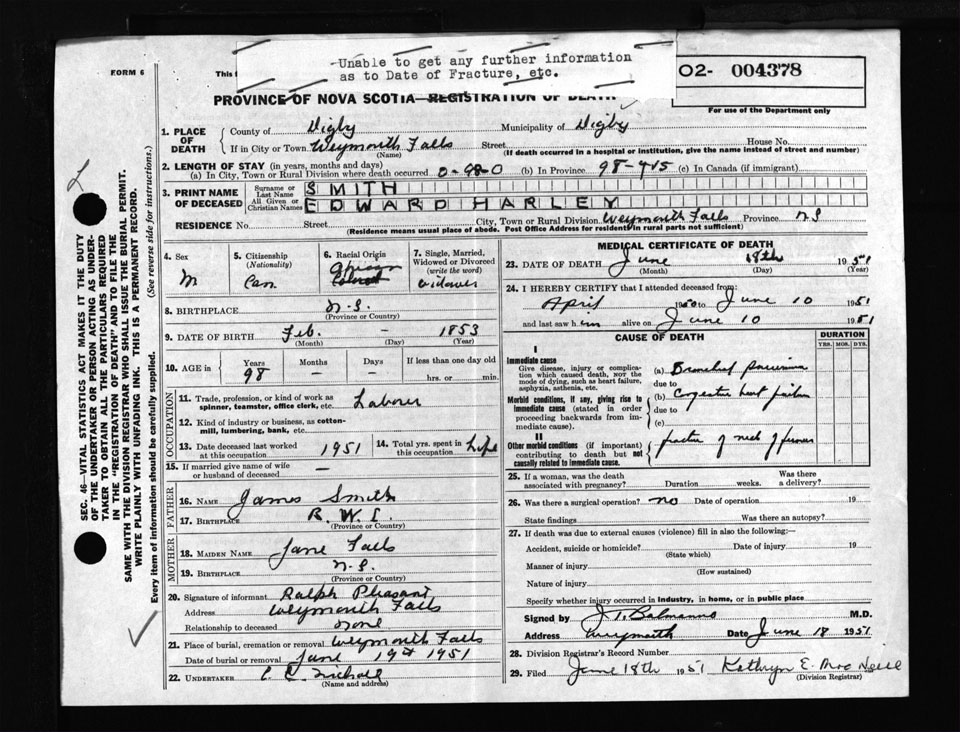 FORM 6
This f
-Unable to get any further information
as to Date of Fracture, etc.
02- 004378
For use of the Department only
PROVINCE OF NOVA SCOTIA—REGISTRATION OF DEATH
SEC. 46—VITAL STATISTICS ACT MAKES IT THE DUTY
OF THE UNDERTAKER OR PERSON ACTING AS UNDER-
TAKER TO OBTAIN ALL THE PARTICULARS REQUIRED
IN THE "REGISTRATION OF DEATH" AND TO FILE THE
SAME WITH THE DIVISION REGISTRAR WHO SHALL ISSUE THE BURIAL PERMIT.
WRITE PLAINLY WITH UNFADING INK. THIS IS A PERMANENT RECORD.
Every item of information should be carefully supplied. (See reverse side for instructions.)
1. PLACE OF DEATH
County of Digby Municipality of Digby
If in City or Town Weymouth Falls Street House No.
(Name) (If death occurred in a hospital or institution, give the name instead of street and number)
2. LENGTH OF STAY (in years, months and days)
(a) In City, Town or Rural Division where death occurred 0-98-0 (b) In Province 98 (c) In Canada (if immigrant)
3. PRINT NAME OF DECEASED
Surname or Last Name SMITH
All Given or Christian Names EDWARD HARLEY
RESIDENCE No. Street City, Town or Rural Division Weymouth Falls Province N S
(Residence means usual place of abode. Post Office Address for residents in rural parts not sufficient)
4. Sex
M
5. Citizenship
(Nationality)
Can.
6. Racial Origin
African
Colored
7. Single, Married,
Widowed or Divorced
(write the word)
widower
8. BIRTHPLACE N.S.
(Province or Country)
9. DATE OF BIRTH Feb. - 1853
(Month) (Day) (Year)
10. AGE in Years Months Days If less than one day old
98 - - hrs. or min.
OCCUPATION
11. Trade, profession, or kind of work as
spinner, teamster, office clerk, etc. Laborer
12. Kind of industry or business, as cotton-
mill, lumbering, bank, etc.
13. Date deceased last worked
at this occupation 1951
14. Total yrs. spent in
this occupation Life
15. If married give name of wife
or husband of deceased —
FATHER
16. NAME James Smith
17. BIRTHPLACE B. W. I.
(Province or Country)
MOTHER
18. MAIDEN NAME Jane Falls
19. BIRTHPLACE N.S.
(Province or Country)
20. Signature of informant Ralph Pleasant
Address Weymouth Falls
Relationship to deceased None
21. Place of burial, cremation or removal Weymouth Falls
Date of burial or removal June 19th 1951
22. UNDERTAKER
(Name and address)
MEDICAL CERTIFICATE OF DEATH
23. DATE OF DEATH June 18th 1951
(Month) (Day) (Year)
24. I HEREBY CERTIFY that I attended deceased from:
April 1950 to June 10 1951
and last saw him alive on June 10 1951
CAUSE OF DEATH
DURATION
YRS. MOS. DYS.
I
Immediate cause
Give disease, injury or complica-
tion which caused death, NOT the
mode of dying, such as heart failure,
asphyxia, asthenia, etc.
(a) Bronchial pneumonia
due to
Morbid conditions, if any, giving rise to
immediate cause (stated in order
proceeding backwards from im-
mediate cause).
(b) Congestive heart failure
due to
(c)
II
Other morbid conditions (if important)
contributing to death but not
causally related to immediate cause.
fracture of neck of femur
25. If a woman, was the death
associated with pregnancy? Duration weeks. Was there
a delivery?
26. Was there a surgical operation? no Date of operation 19
State findings Was there an autopsy?
27. If death was due to external causes (violence) fill in also the following:—
Accident, suicide or homicide? Date of injury 19
(State which)
Manner of injury
(How sustained)
Nature of injury
Specify whether injury occurred in industry, in home, or in public place
Signed by M.D.
Address Weymouth Date June 18 1951
28. Division Registrar's Record Number
29. Filed June 18th 1951 Kathryn E. Mac Neill
(Division Registrar)